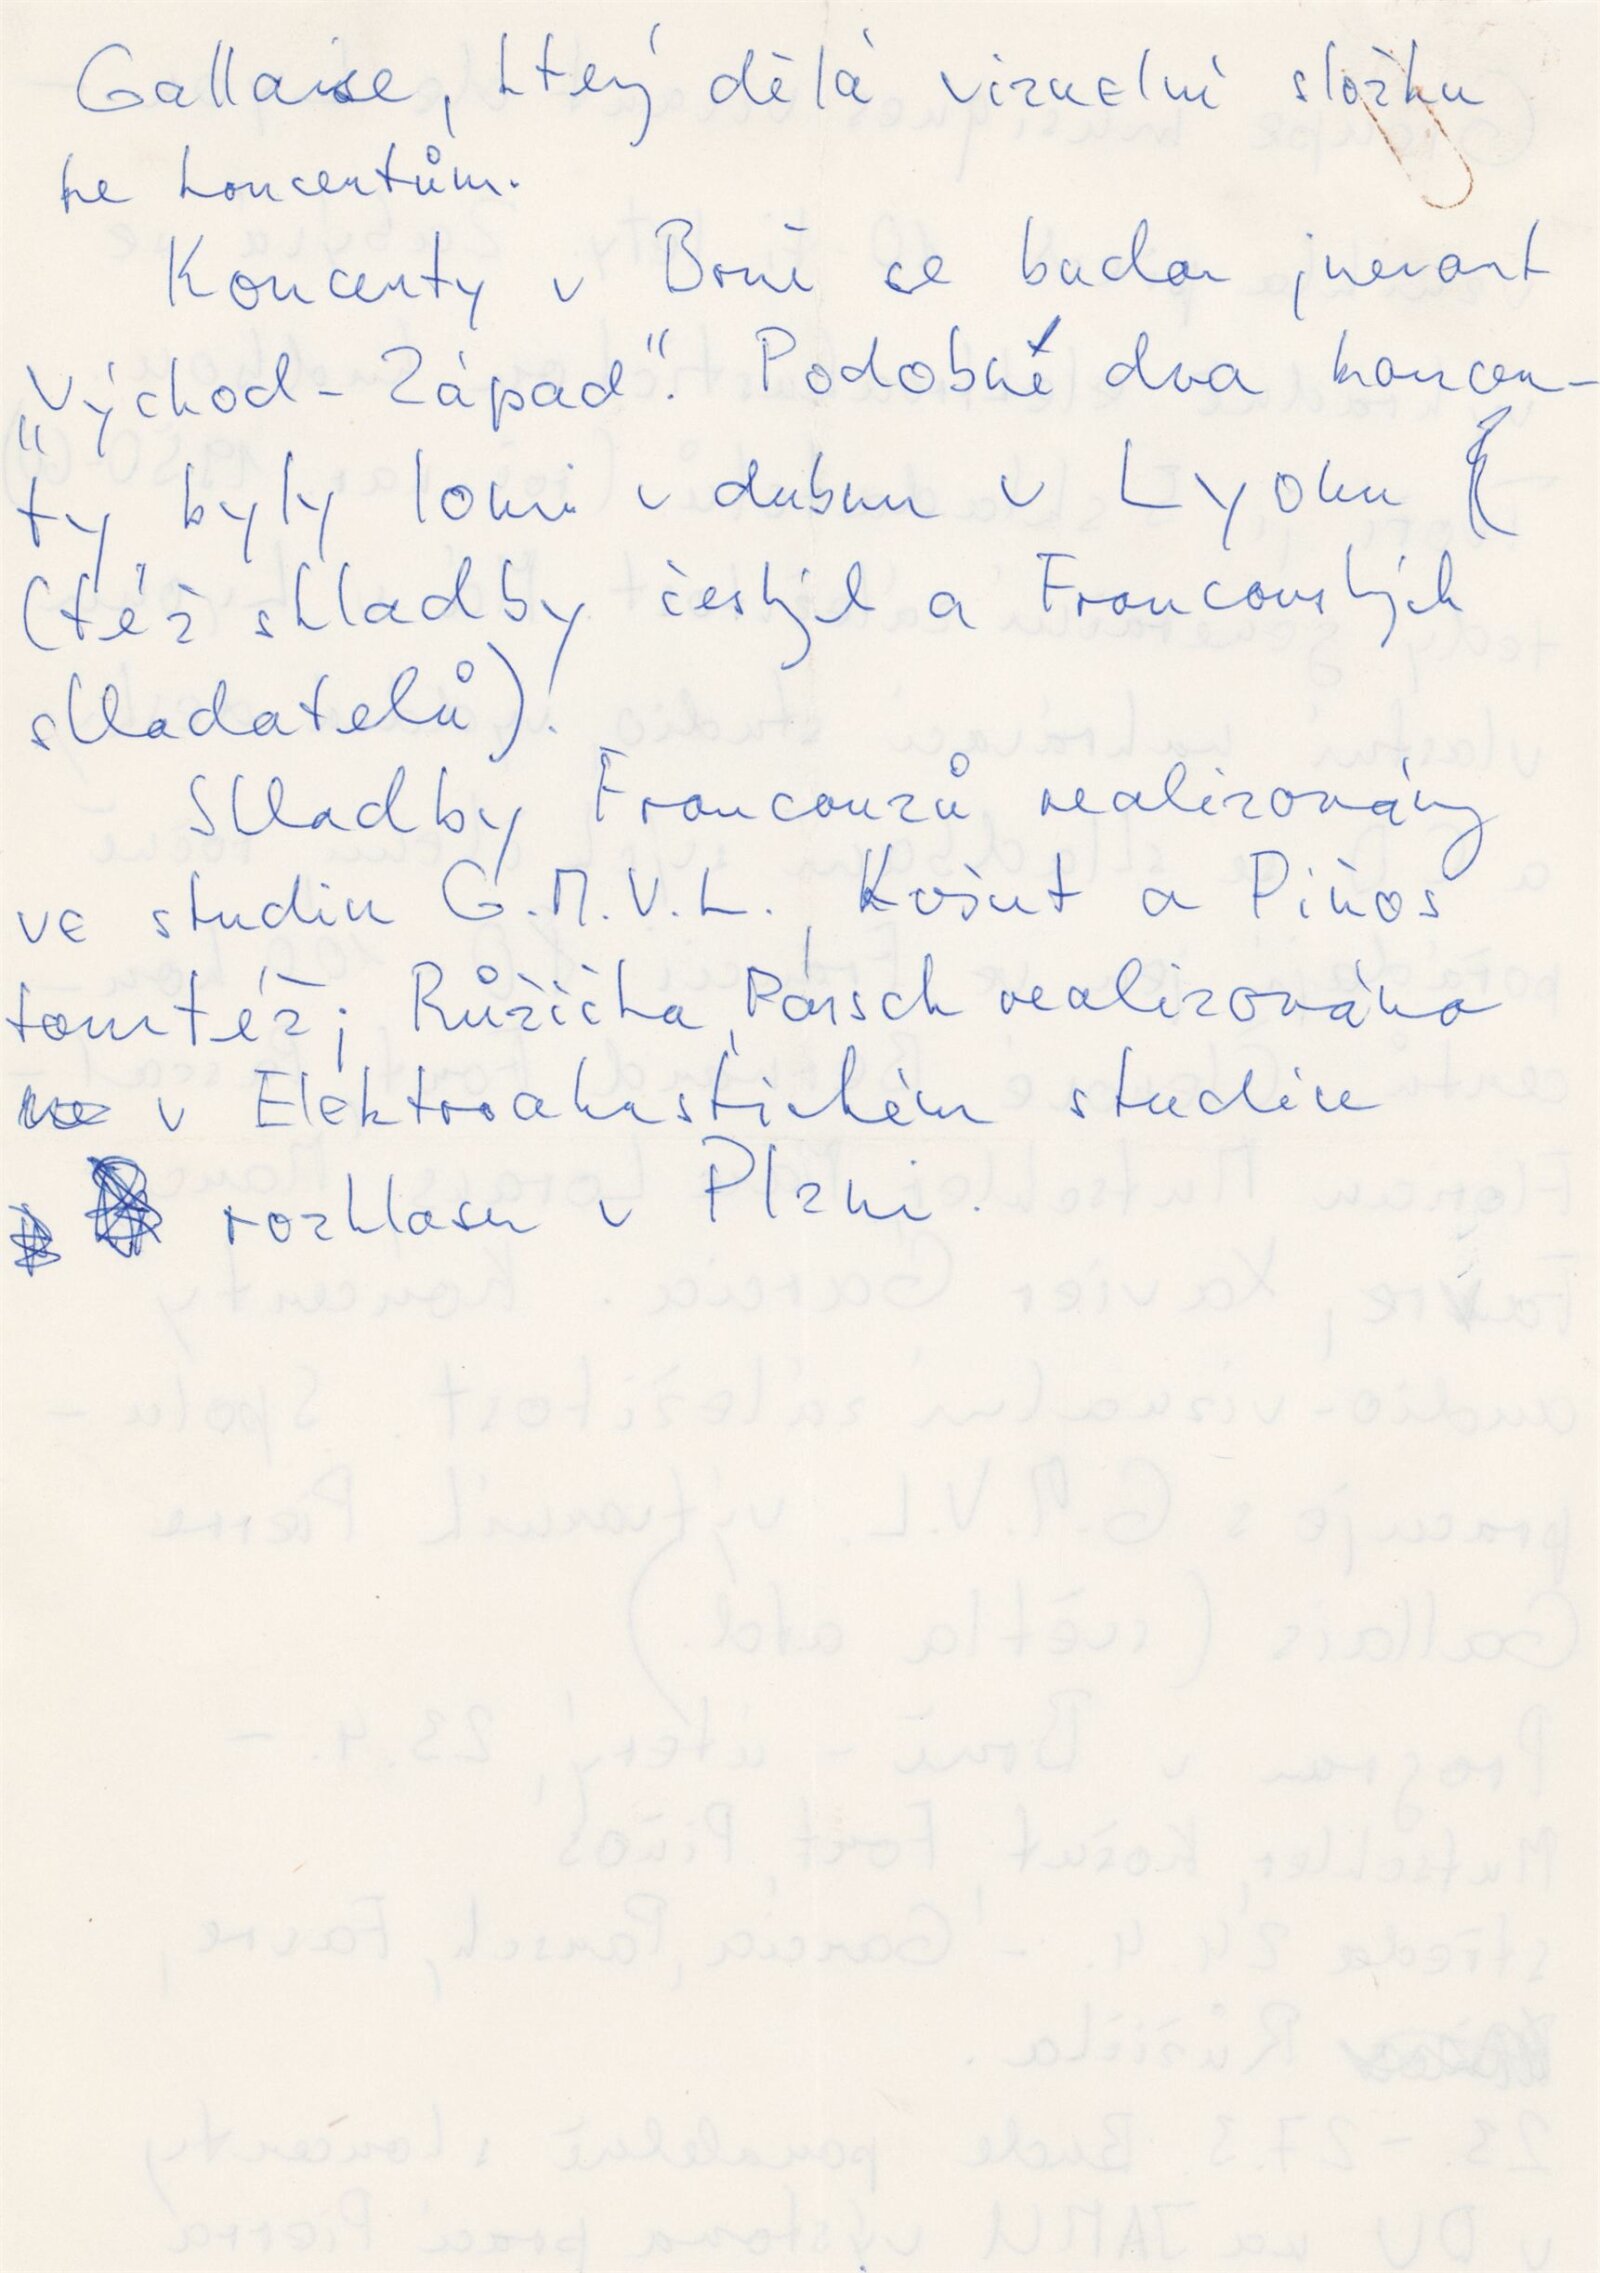 Gallaise, který dělá vizuelní složku
ke koncertům.
Koncerty v Brně se budou jmenovat
„Východ - Západ". Podobně dva koncer-
ty byly loni v dubnu v Lyonu
(též skladby českých a Francouzských
skladatelů).
Skladby Francouzů realizovány
ve studiu G.M.V.L., Košut a Piňos
tomtéž; Růžička, Parsch realizována
v Elektroakustickém studiu
rozhlasu v Plzni.